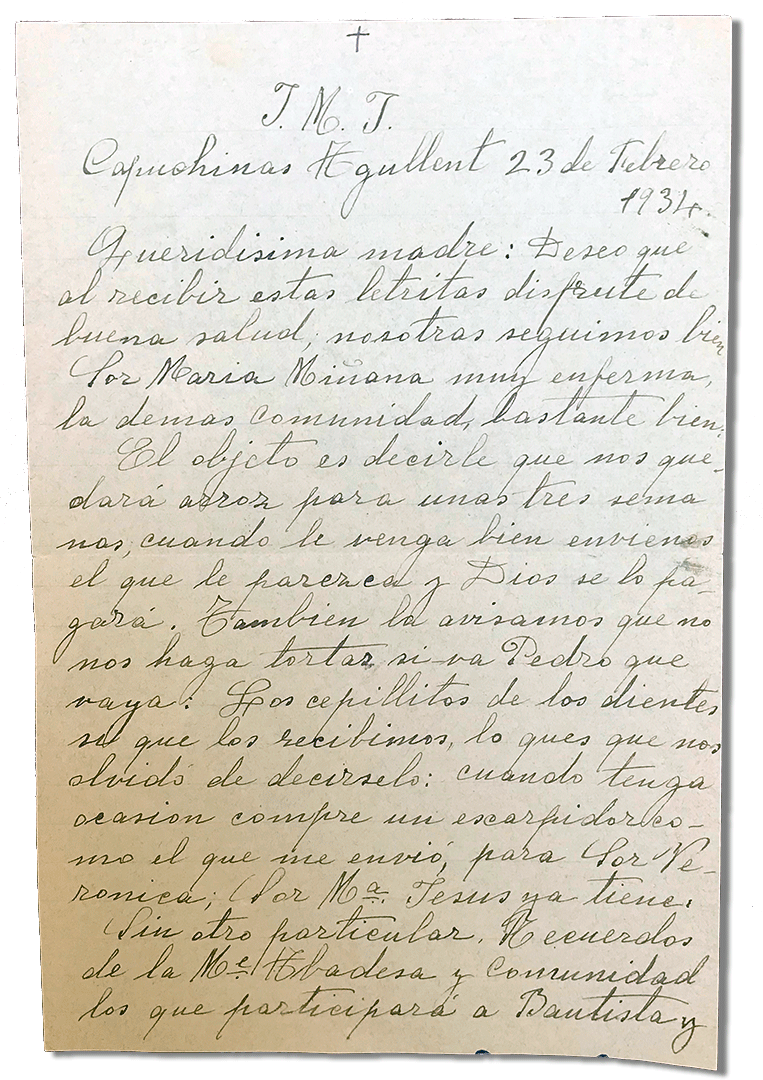 +
J. M. J.
Capuchinas Agullent 23 de Febrero
1934.
Queridisima madre: Deseo que
al recibir estas letritas disfrute de
buena salud, nosotras seguimos bien
Sor Maria Miñana muy enferma,
la demas comunidad, bastante bien.
El objeto es decirle que nos que-
dará arroz para unas tres sema
nas, cuando le venga bien envienos
el que le parezca y Dios se lo pa-
gará. Tambien la avisamos que no
nos haga tortas si va Pedro que
vaya: Los cepillitos de los dientes
si que los recibimos, lo ques que nos
olvidó de decirselo: cuando tenga
ocasion compre un escarpidor co-
mo el que me envió, para Sor Ve-
ronica; Sor Mª. Jesus ya tiene.
Sin otro particular. Recuerdos
de la Me. Abadesa y comunidad
los que participará a Bautista y